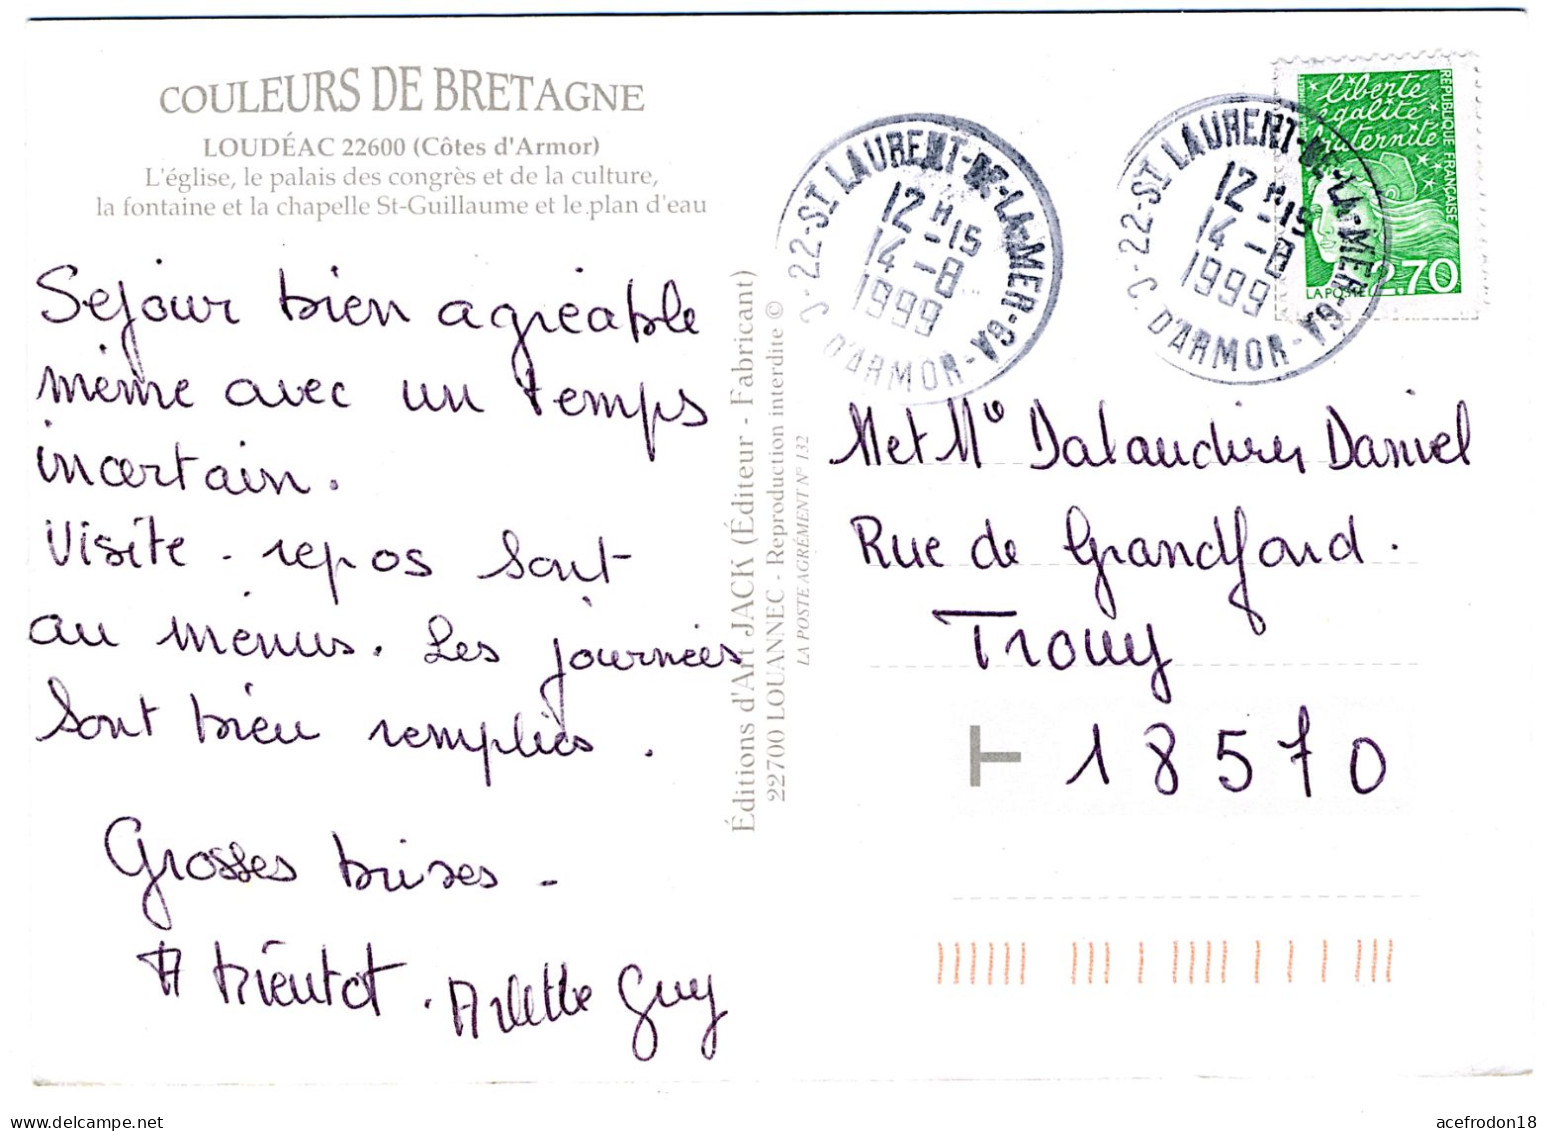 COULEURS DE BRETAGNE
LOUDÉAC 22600 (Côtes d'Armor)
L'église, le palais des congrès et de la culture,
la fontaine et la chapelle St-Guillaume et le plan d'eau
Séjour bien agréable
même avec un temps
incertain.
Visite - repos sont
au menus. Les journées
sont bien remplies.
Grosses bises -
A bientot. Arlette Guy
Éditions d'Art JACK (Éditeur - Fabricant)
22700 LOUANNEC - Reproduction interdite ©
LA POSTE AGRÉMENT N° 132
22-ST LAURENT-DE-LA-MER-GA
12 H 15
14 - 8
1999
D'ARMOR
22-ST LAURENT-DE-LA-MER-GA
12 H 15
14 - 8
1999
C. D'ARMOR
liberté
égalité
fraternité
RÉPUBLIQUE FRANÇAISE
LA POSTE 2,70
M et Me Daniel
Rue de Grandfond.
Trouy
T 18570
acefrodon18